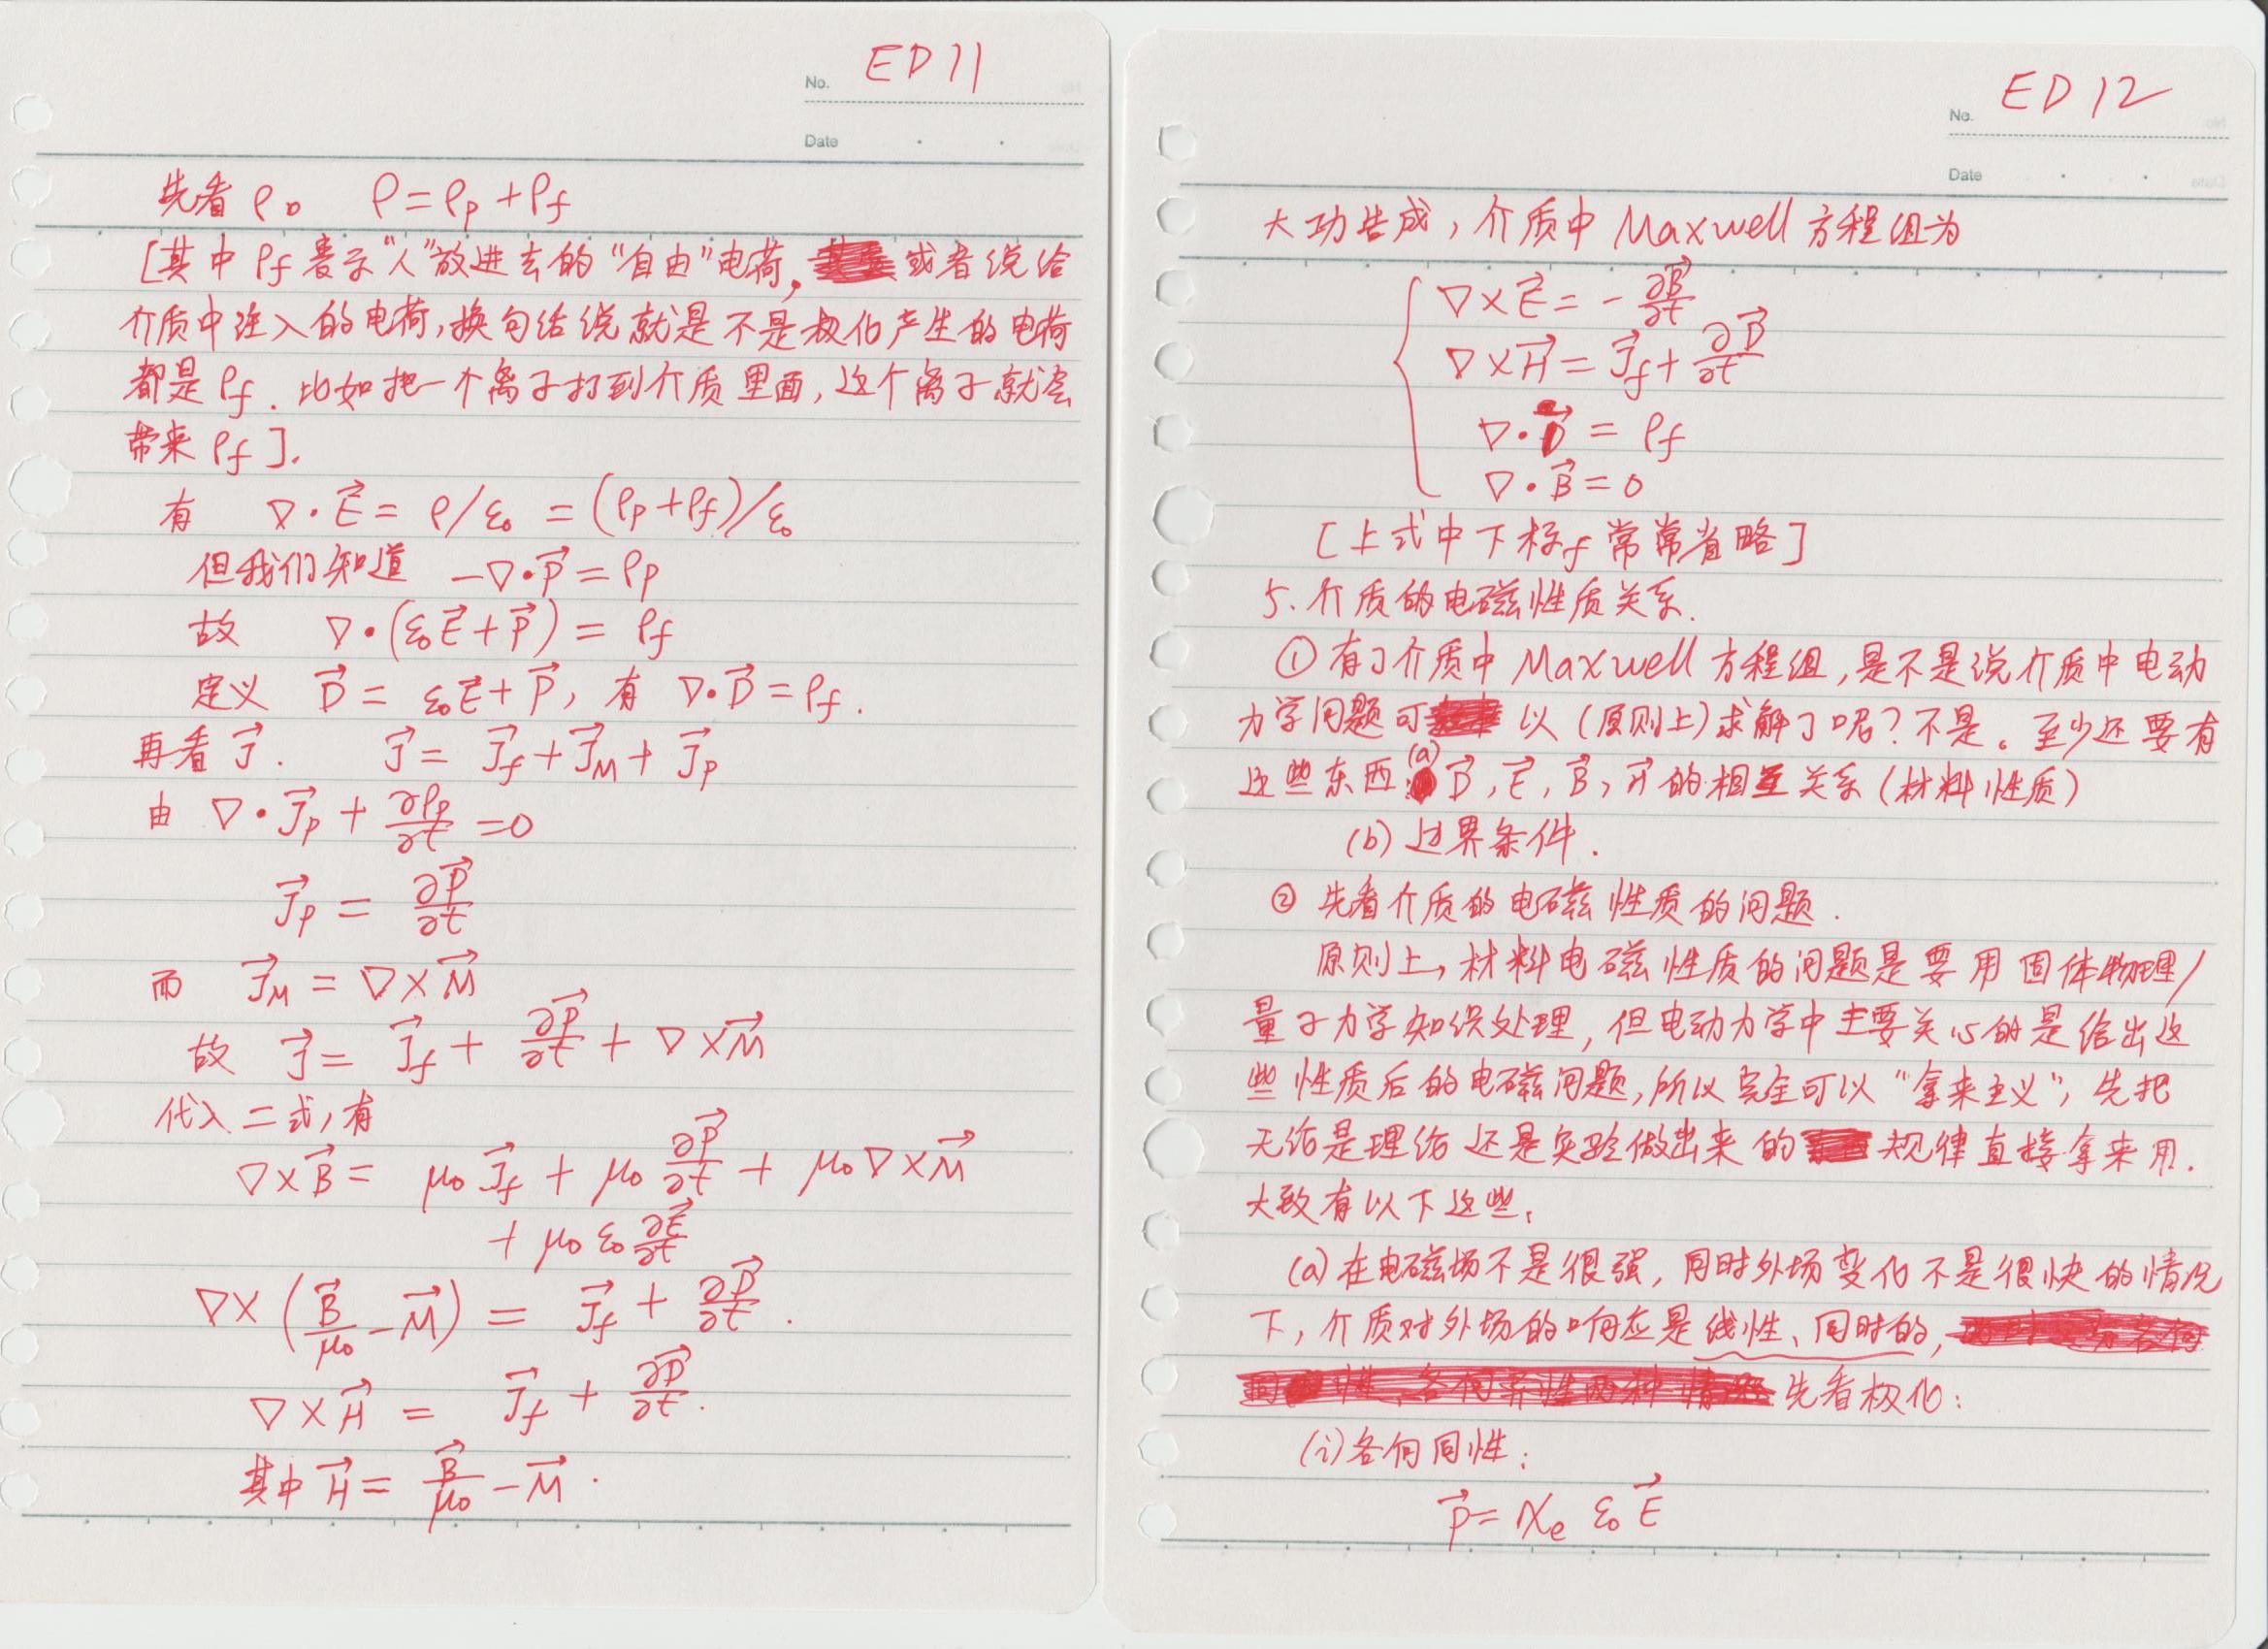 No. ED11
Date
先看ρ。 ρ=ρₚ+ρ_f
[其中ρ_f表示“人”放进去的“自由”电荷, 或者说给
介质中注入的电荷,换句话说就是不是极化产生的电荷
都是ρ_f. 比如把一个离子打到介质里面,这个离子就会
带来ρ_f].
有 ∇·E⃗ = ρ/ε₀ = (ρₚ+ρ_f)/ε₀
但我们知道 -∇·P⃗ = ρₚ
故 ∇·(ε₀E⃗+P⃗) = ρ_f
定义 D⃗ = ε₀E⃗+P⃗, 有 ∇·D⃗=ρ_f.
再看J⃗. J⃗ = J⃗_f+J⃗_M+J⃗_p
由 ∇·J⃗_p + ∂ρₚ/∂t =0
J⃗_p = ∂P⃗/∂t
而 J⃗_M = ∇×M⃗
故 J⃗ = J⃗_f + ∂P⃗/∂t + ∇×M⃗
代入二式,有
∇×B⃗ = μ₀J⃗_f + μ₀ ∂P⃗/∂t + μ₀∇×M⃗
+ μ₀ε₀ ∂E⃗/∂t
∇×(B⃗/μ₀ - M⃗) = J⃗_f + ∂D⃗/∂t.
∇×H⃗ = J⃗_f + ∂D⃗/∂t.
其中H⃗ = B⃗/μ₀ - M⃗.
No. ED12
Date
大功告成,介质中Maxwell方程组为
∇×E⃗ = -∂B⃗/∂t
∇×H⃗ = J⃗_f + ∂D⃗/∂t
∇·D⃗ = ρ_f
∇·B⃗ = 0
[上式中下标f常常省略]
5.介质的电磁性质关系.
①有了介质中Maxwell方程组,是不是说介质中电动
力学问题可以(原则上)求解了呢?不是。至少还要有
这些东西:(a) D⃗,E⃗,B⃗,H⃗的相互关系(材料性质)
(b)边界条件.
② 先看介质的电磁性质的问题.
原则上,材料电磁性质的问题是要用固体物理/
量子力学知识处理,但电动力学中主要关心的是给出这
些性质后的电磁问题,所以完全可以“拿来主义”,先把
无论是理论还是实验做出来的 规律直接拿来用.
大致有以下这些:
(a)在电磁场不是很强,同时外场变化不是很快的情况
下,介质对外场的响应是线性、同时的,
先看极化:
(i)各向同性:
P⃗=χₑ ε₀E⃗